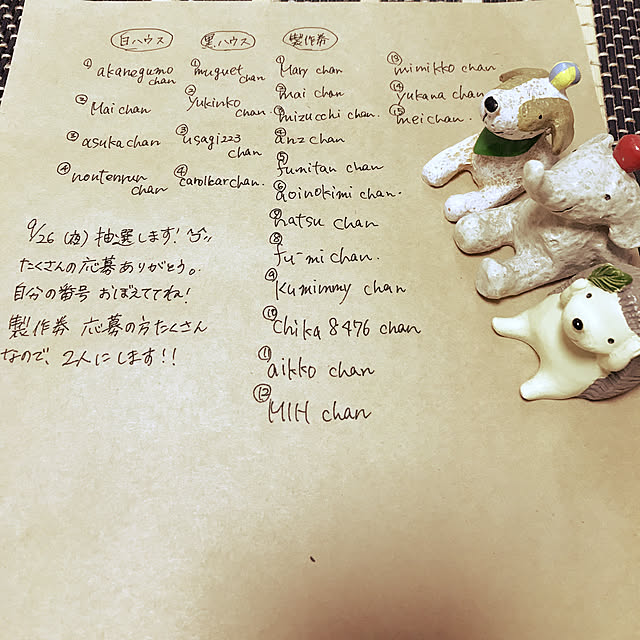 白ハウス
① akanegumo chan
② Mai chan
③ asuka chan
④ nontenrun chan
黒ハウス
① muguet chan
② yukinko chan.
③ usagi223 chan
④ carolbar chan.
製作券
① Mary chan
② mai chan
③ mizucchi chan.
④ anz chan
⑤ fumitan chan
⑥ aoinokimi chan.
⑦ natsu chan
⑧ fu-mi chan.
⑨ kumimmy chan
⑩ chika8476 chan
⑪ aikko chan
⑫ MIH chan
⑬ mimikko chan
⑭ yukana chan
⑮ mei chan.
9/26 (夜) 抽選します!
たくさんの応募ありがとう。
自分の番号 おぼえててね!
製作券 応募の方たくさん
なので、2人にします!!